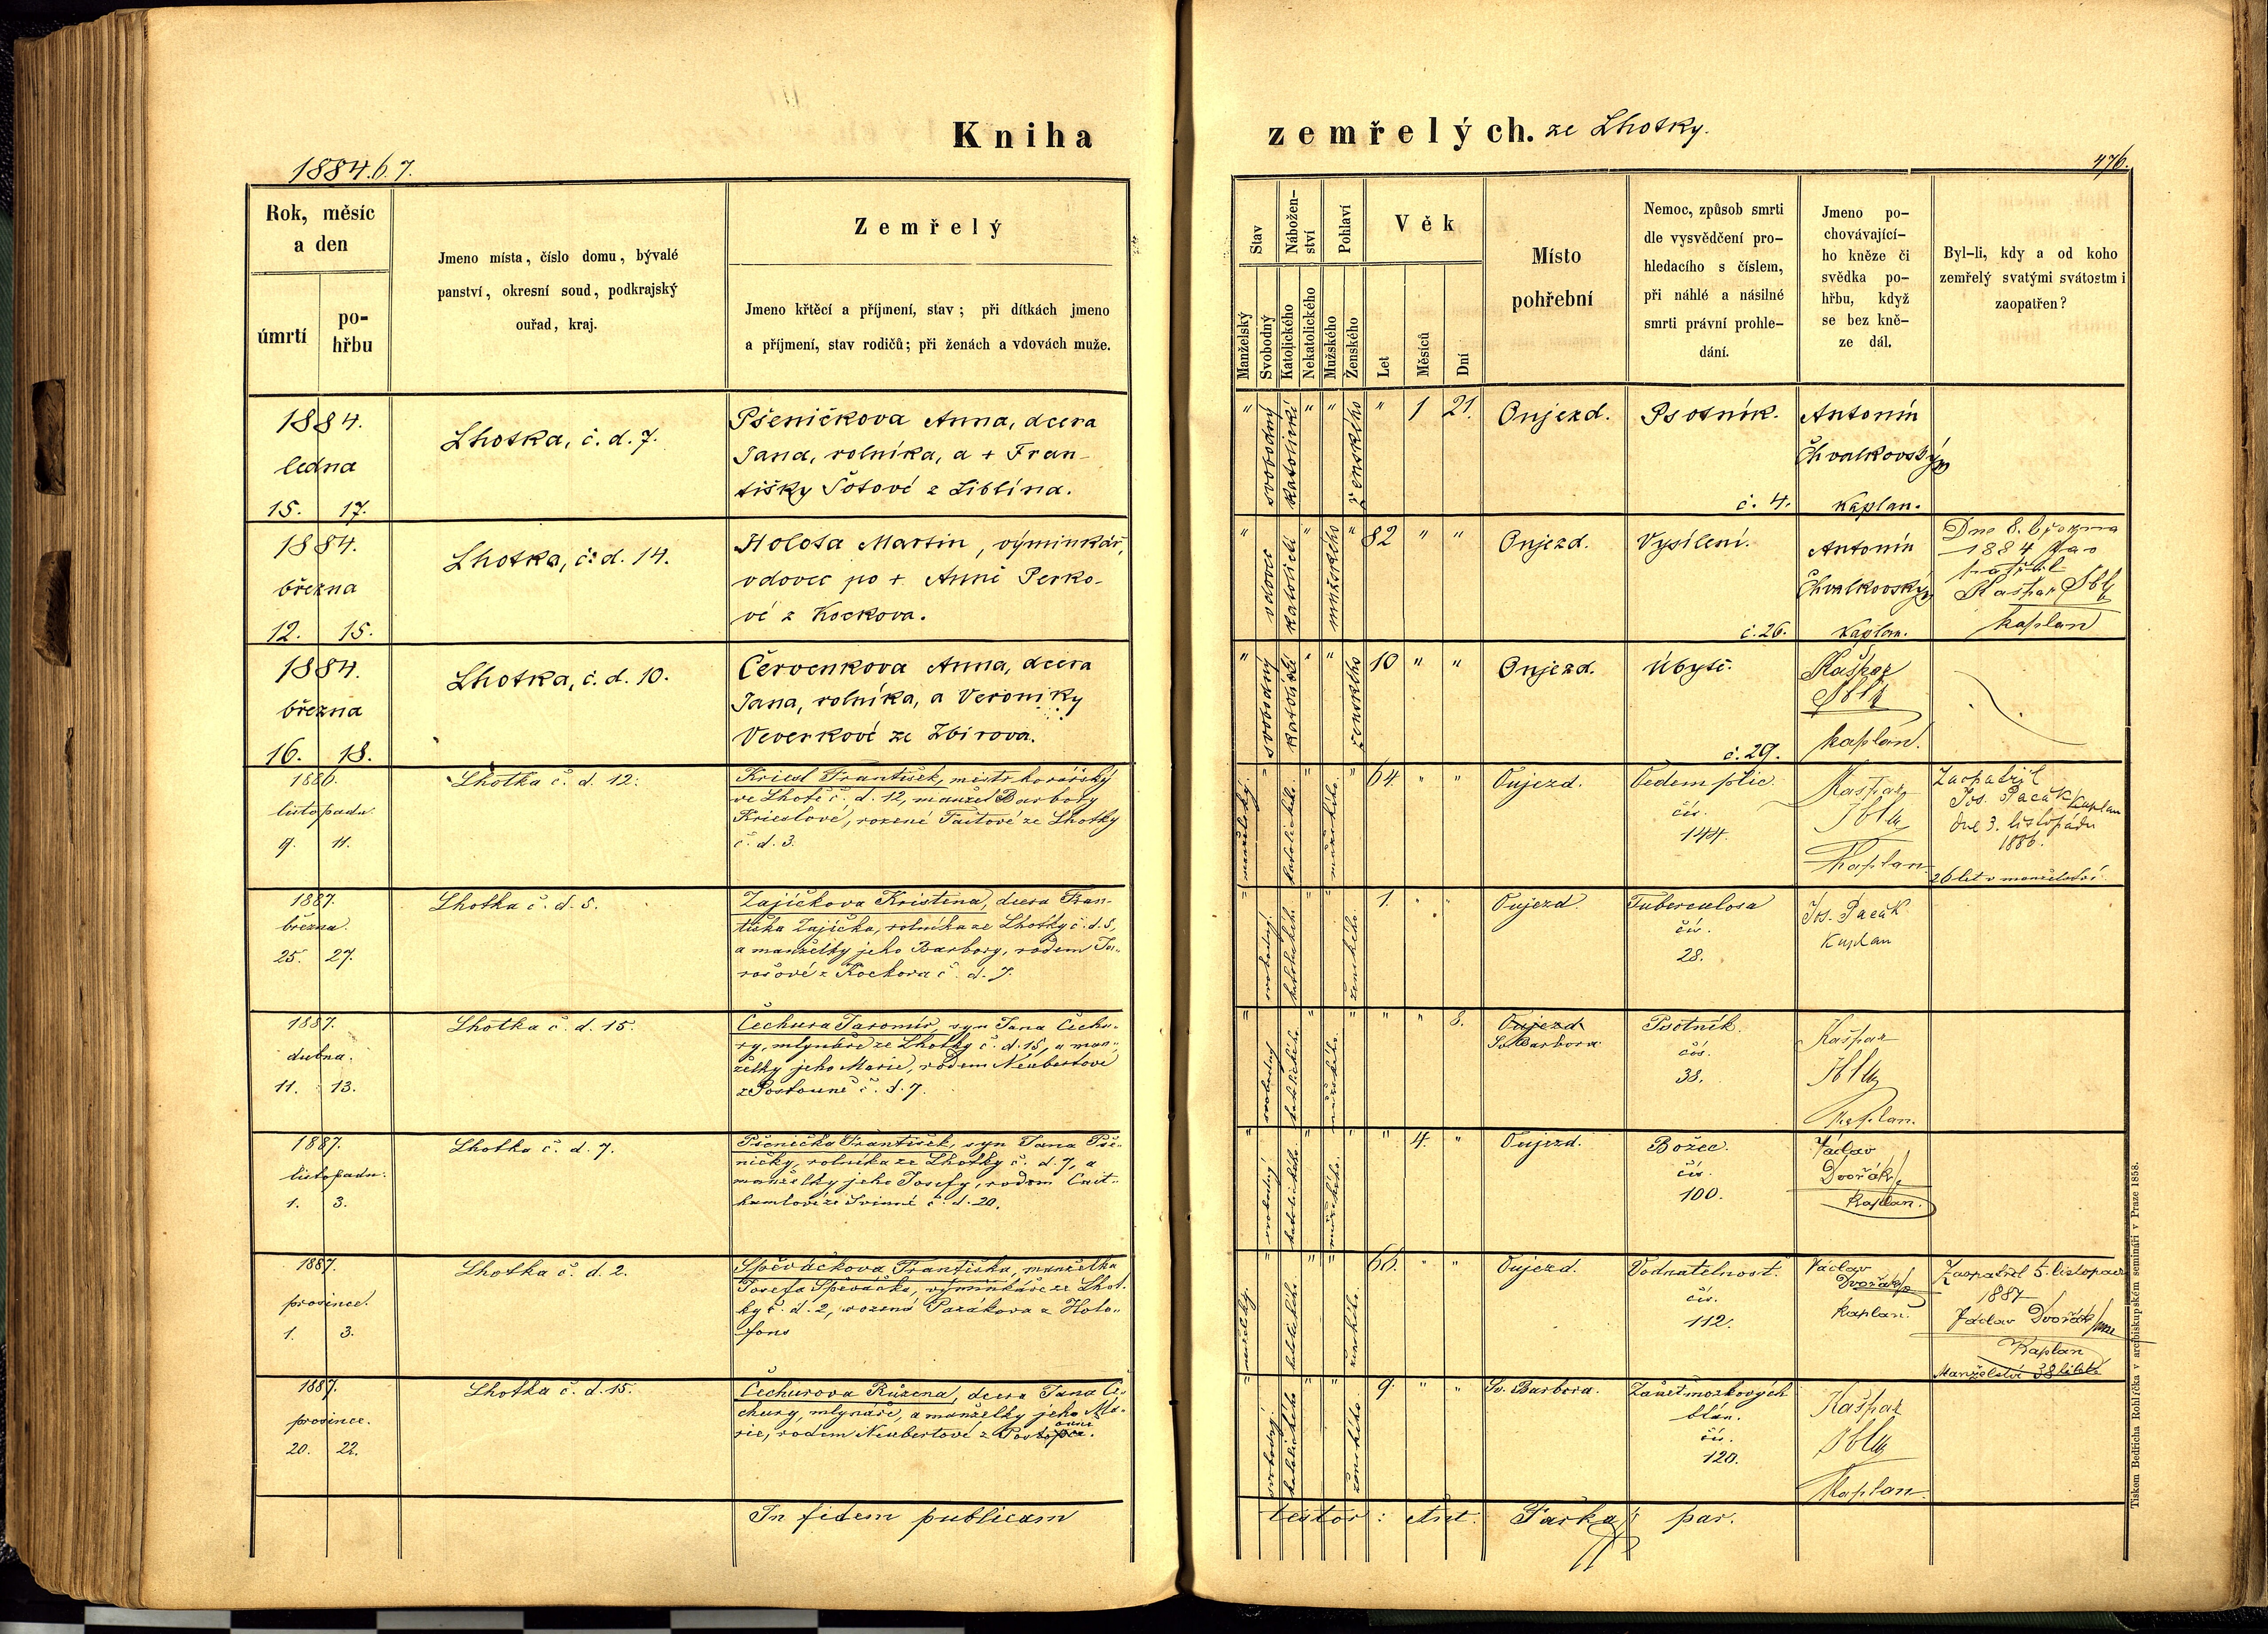 Kniha zemřelých. ze Lhotky.
1884.6.7.
476.
Rok, měsíc a den
úmrtí
po-
hřbu
Jmeno místa, číslo domu, bývalé
panství, okresní soud, podkrajský
ouřad, kraj.
Zemřelý
Jmeno křtěcí a příjmení, stav; při dítkách jmeno
a příjmení, stav rodičů; při ženách a vdovách muže.
Stav
Manželský
Svobodný
Nábožen-
ství
Katolického
Nekatolického
Pohlaví
Mužského
Ženského
Věk
Let
Měsíců
Dní
Místo
pohřební
Nemoc, způsob smrti
dle vysvědčení pro-
hledacího s číslem,
při náhlé a násilné
smrti právní prohle-
dání.
Jmeno po-
chovávající-
ho kněze či
svědka po-
hřbu, když
se bez kně-
ze dál.
Byl-li, kdy a od koho
zemřelý svatými svátostmi
zaopatřen?
1884.
ledna
15. 17.
Lhotka, č. d. 7.
Pšeničkova Anna, dcera
Jana, rolníka, a + Fran-
tišky Šotové z Liblína.
" svobodný katolické " " ženského " 1 21.
Oujezd.
Psotník.
č. 4.
Antonín
Chvalkovský
Kaplan.
1884.
března
12. 15.
Lhotka, č. d. 14.
Holota Martin, výminkář,
vdovec po + Anně Perko-
vé z Kockova.
" vdovec katolické " mužského " 82 " "
Oujezd.
Vysílení.
č. 26.
Antonín
Chvalkovský
Kaplan.
Dne 8. března
1884
Kašpar
kaplan
1884.
března
16. 18.
Lhotka, č. d. 10.
Červenkova Anna, dcera
Jana, rolníka, a Veroniky
Veverkové ze Zbirova.
" svobodný katolické " " ženského 10 " "
Oujezd.
Úbytě.
č. 29.
Kašpar
kaplan.
1886.
listopadu.
9. 11.
Lhotka č. d. 12.
Kriesl František, mistr kovářský
ve Lhotě č. d. 12, manžel Barbory
Krieslové, rozené Taitové ze Lhotky
č. d. 3.
manželský. " katolického. " mužského. " 64. " "
Oujezd.
Oedem plic.
čís.
144.
Kašpar
Kaplan
Zaopatřil
Jos. Pacák Kaplan
dne 3. listopadu
1886.
26 let v manželství.
1887.
března.
25. 27.
Lhotka č. d. 5.
Zajíčkova Kristena, dcera Fran-
tiška Zajíčka, rolníka ze Lhotky č. d. 5,
a manželky jeho Barbory, rodem
z Kockova č. d. 7.
" svobodný. katolického. " " ženského. 1. " "
Oujezd.
Tuberculosa
čís.
28.
Jos. Pacák
Kaplan
1887.
dubna.
11. 13.
Lhotka č. d. 15.
Čechura Jaromír, syn Jana Čechu-
ry, mlynáře ze Lhotky č. d. 15, a man-
želky jeho Marie, rodem Neubertové
č. d. 7.
" svobodný katolického. " mužského. " " " 8.
Oujezd
Sv. Barbora.
Psotník.
čís.
38.
Kašpar
Kaplan.
1887.
listopadu.
1. 3.
Lhotka č. d. 7.
Pšenička František, syn Jana Pše-
ničky, rolníka ze Lhotky č. d. 7, a
manželky jeho Josefy, rodem
ze Svinné č. d. 20.
" svobodný katolického. " mužského. " " 4. "
Oujezd.
Božec.
čís.
100.
Václav
Dvořák
Kaplan.
1887.
prosince.
1. 3.
Lhotka č. d. 2.
Spěváčkova Františka, manželka
Josefa Spěváčka, výminkáře ze Lhot-
ky č. d. 2, rozená Pazákova z Holo-
" katolického. " " ženského. 66. " "
Oujezd.
Vodnatelnost.
čís.
112.
Václav
Dvořák
kaplan.
Zaopatřil 5. listopad
1887
Václav Dvořák
Kaplan
Manželství 38
1887.
prosince.
20. 22.
Lhotka č. d. 15.
Čechurova Růžena, dcera Jana Če-
chury, mlynáře, a manželky jeho Ma-
rie, rodem Neubertové z
" svobodný. katolického " " ženského 9. " "
Sv. Barbora.
Zánět mozkových
blan.
čís.
120.
Kašpar
Kaplan.
In fidem publicam
testor: Ant. par.
Tiskem Bedřicha Rohlíčka v arcibiskupském semináři v Praze 1858.